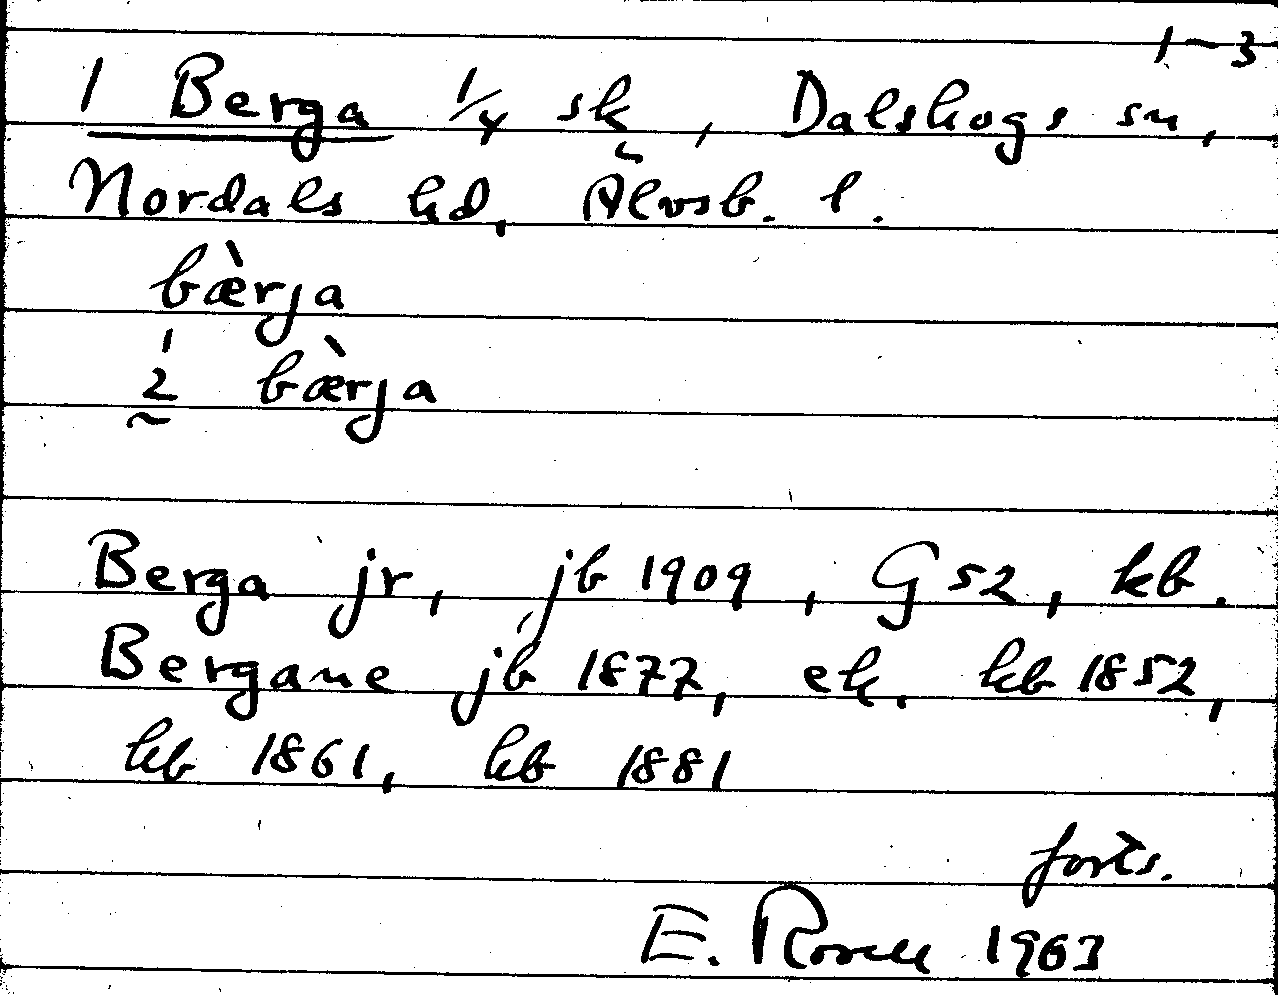 1-3
1 Berga 1/4 sk, Dalskogs sn,
Nordals hd, Älvsb. l.
bæ̀rja
1
2 bæ̀rja
Berga jr, jb 1909, G 52, kb.
Bergane jb 1877, ek. kb 1852,
kb 1861, kb 1881
forts.
E. Rosell 1963